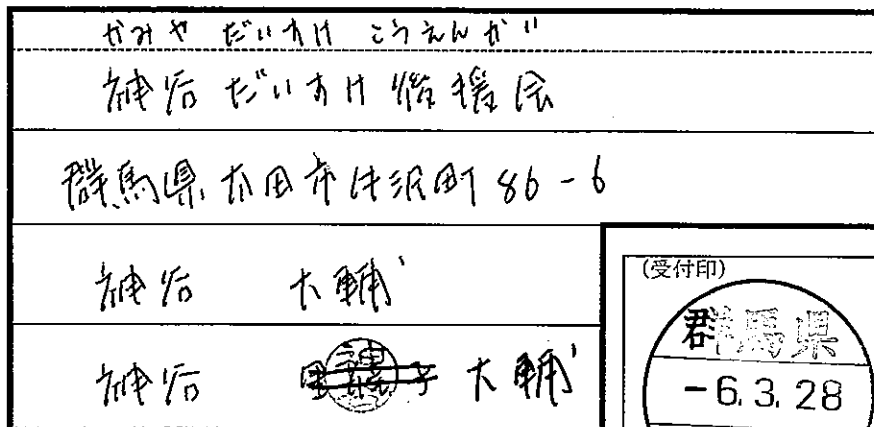 かみや だいすけ こうえんかい
神谷だいすけ後援会
群馬県太田市沢町86-6
神谷 大輔
神谷 大輔
(受付印)
群馬県
-6.3.28